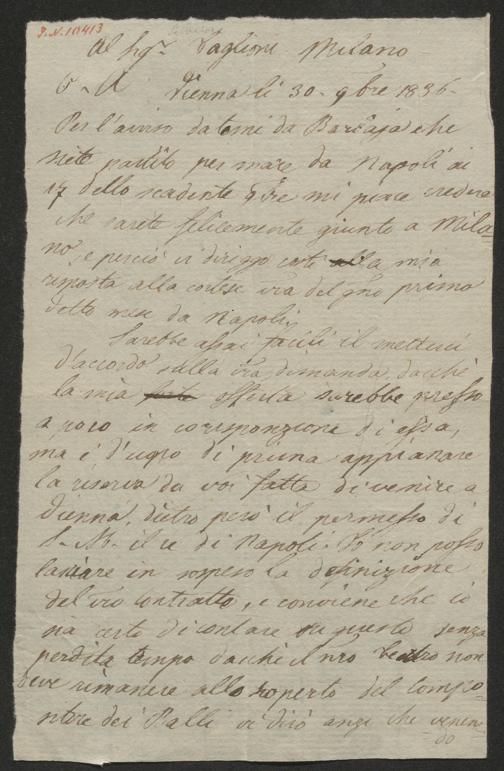 I.N. 111413
Al Sigr. Taglioni Milano
C. A. Vienna li 30. 9bre 1836.
Per l'avviso datomi da Barbaja che
siete partito per mare da Napoli ai
17 dello scadente 9bre mi piace credere
che sarete felicemente giunto a Mila=
no, e perciò vi dirigo costà alla mia
risposta alla cortese vra del gno primo
detto mese da Napoli.
Sarebbe assai facile il metterci
d'accordo sulla vra dimanda, dacchè
la mia offerta sarebbe presso
a poco in corrisponzione di essa,
ma è d'uopo di prima appianare
la riserva da voi fatta di venire a
Vienna, dietro però il permesso di
S. M. il re di Napoli. Io non posso
lasciare in sospeso la definizione
del vro contratto, e conviene che io
sia certo di contare su questo senza
perdita tempo dacchè il nro Teatro non
deve rimanere allo scoperto del compo=
sitore dei Balli vi dirò anzi che venen=
do